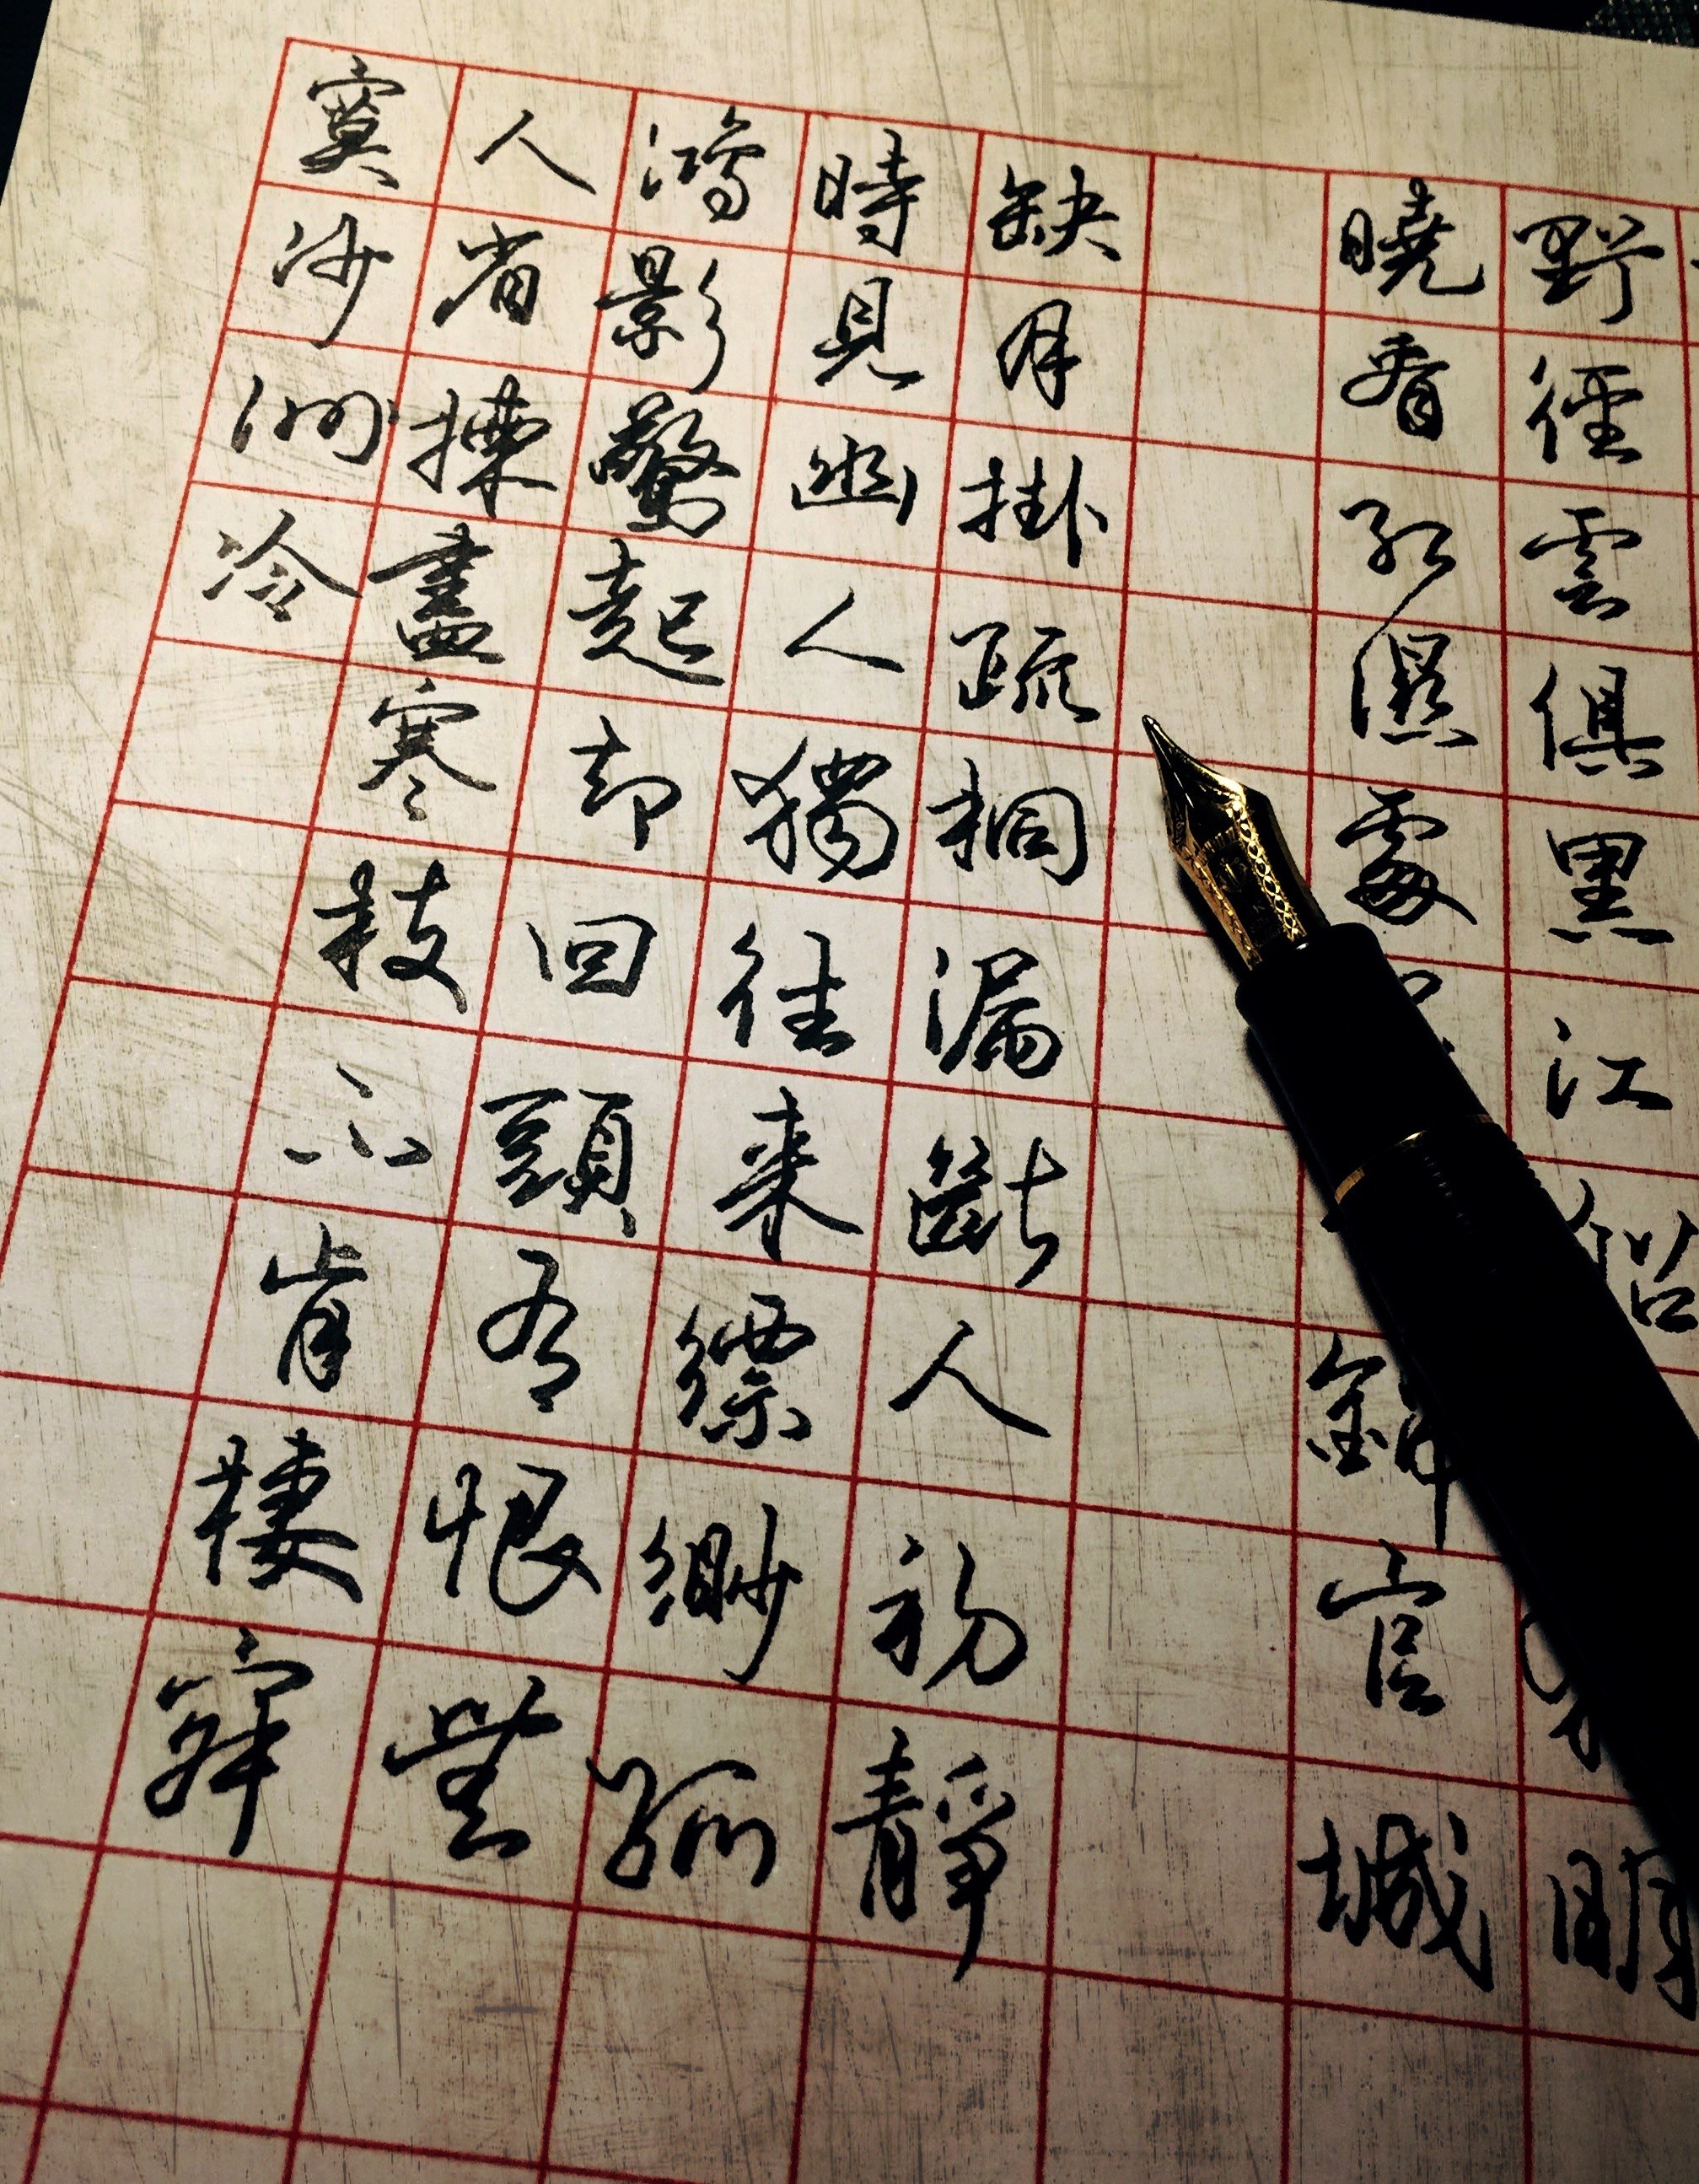 野徑雲俱黑江船明
曉看紅濕處錦官城
缺月掛疏桐漏斷人初靜
時見幽人獨往來縹緲孤
鴻影驚起卻回頭有恨無
人省揀盡寒枝不肯棲寂
寞沙洲冷